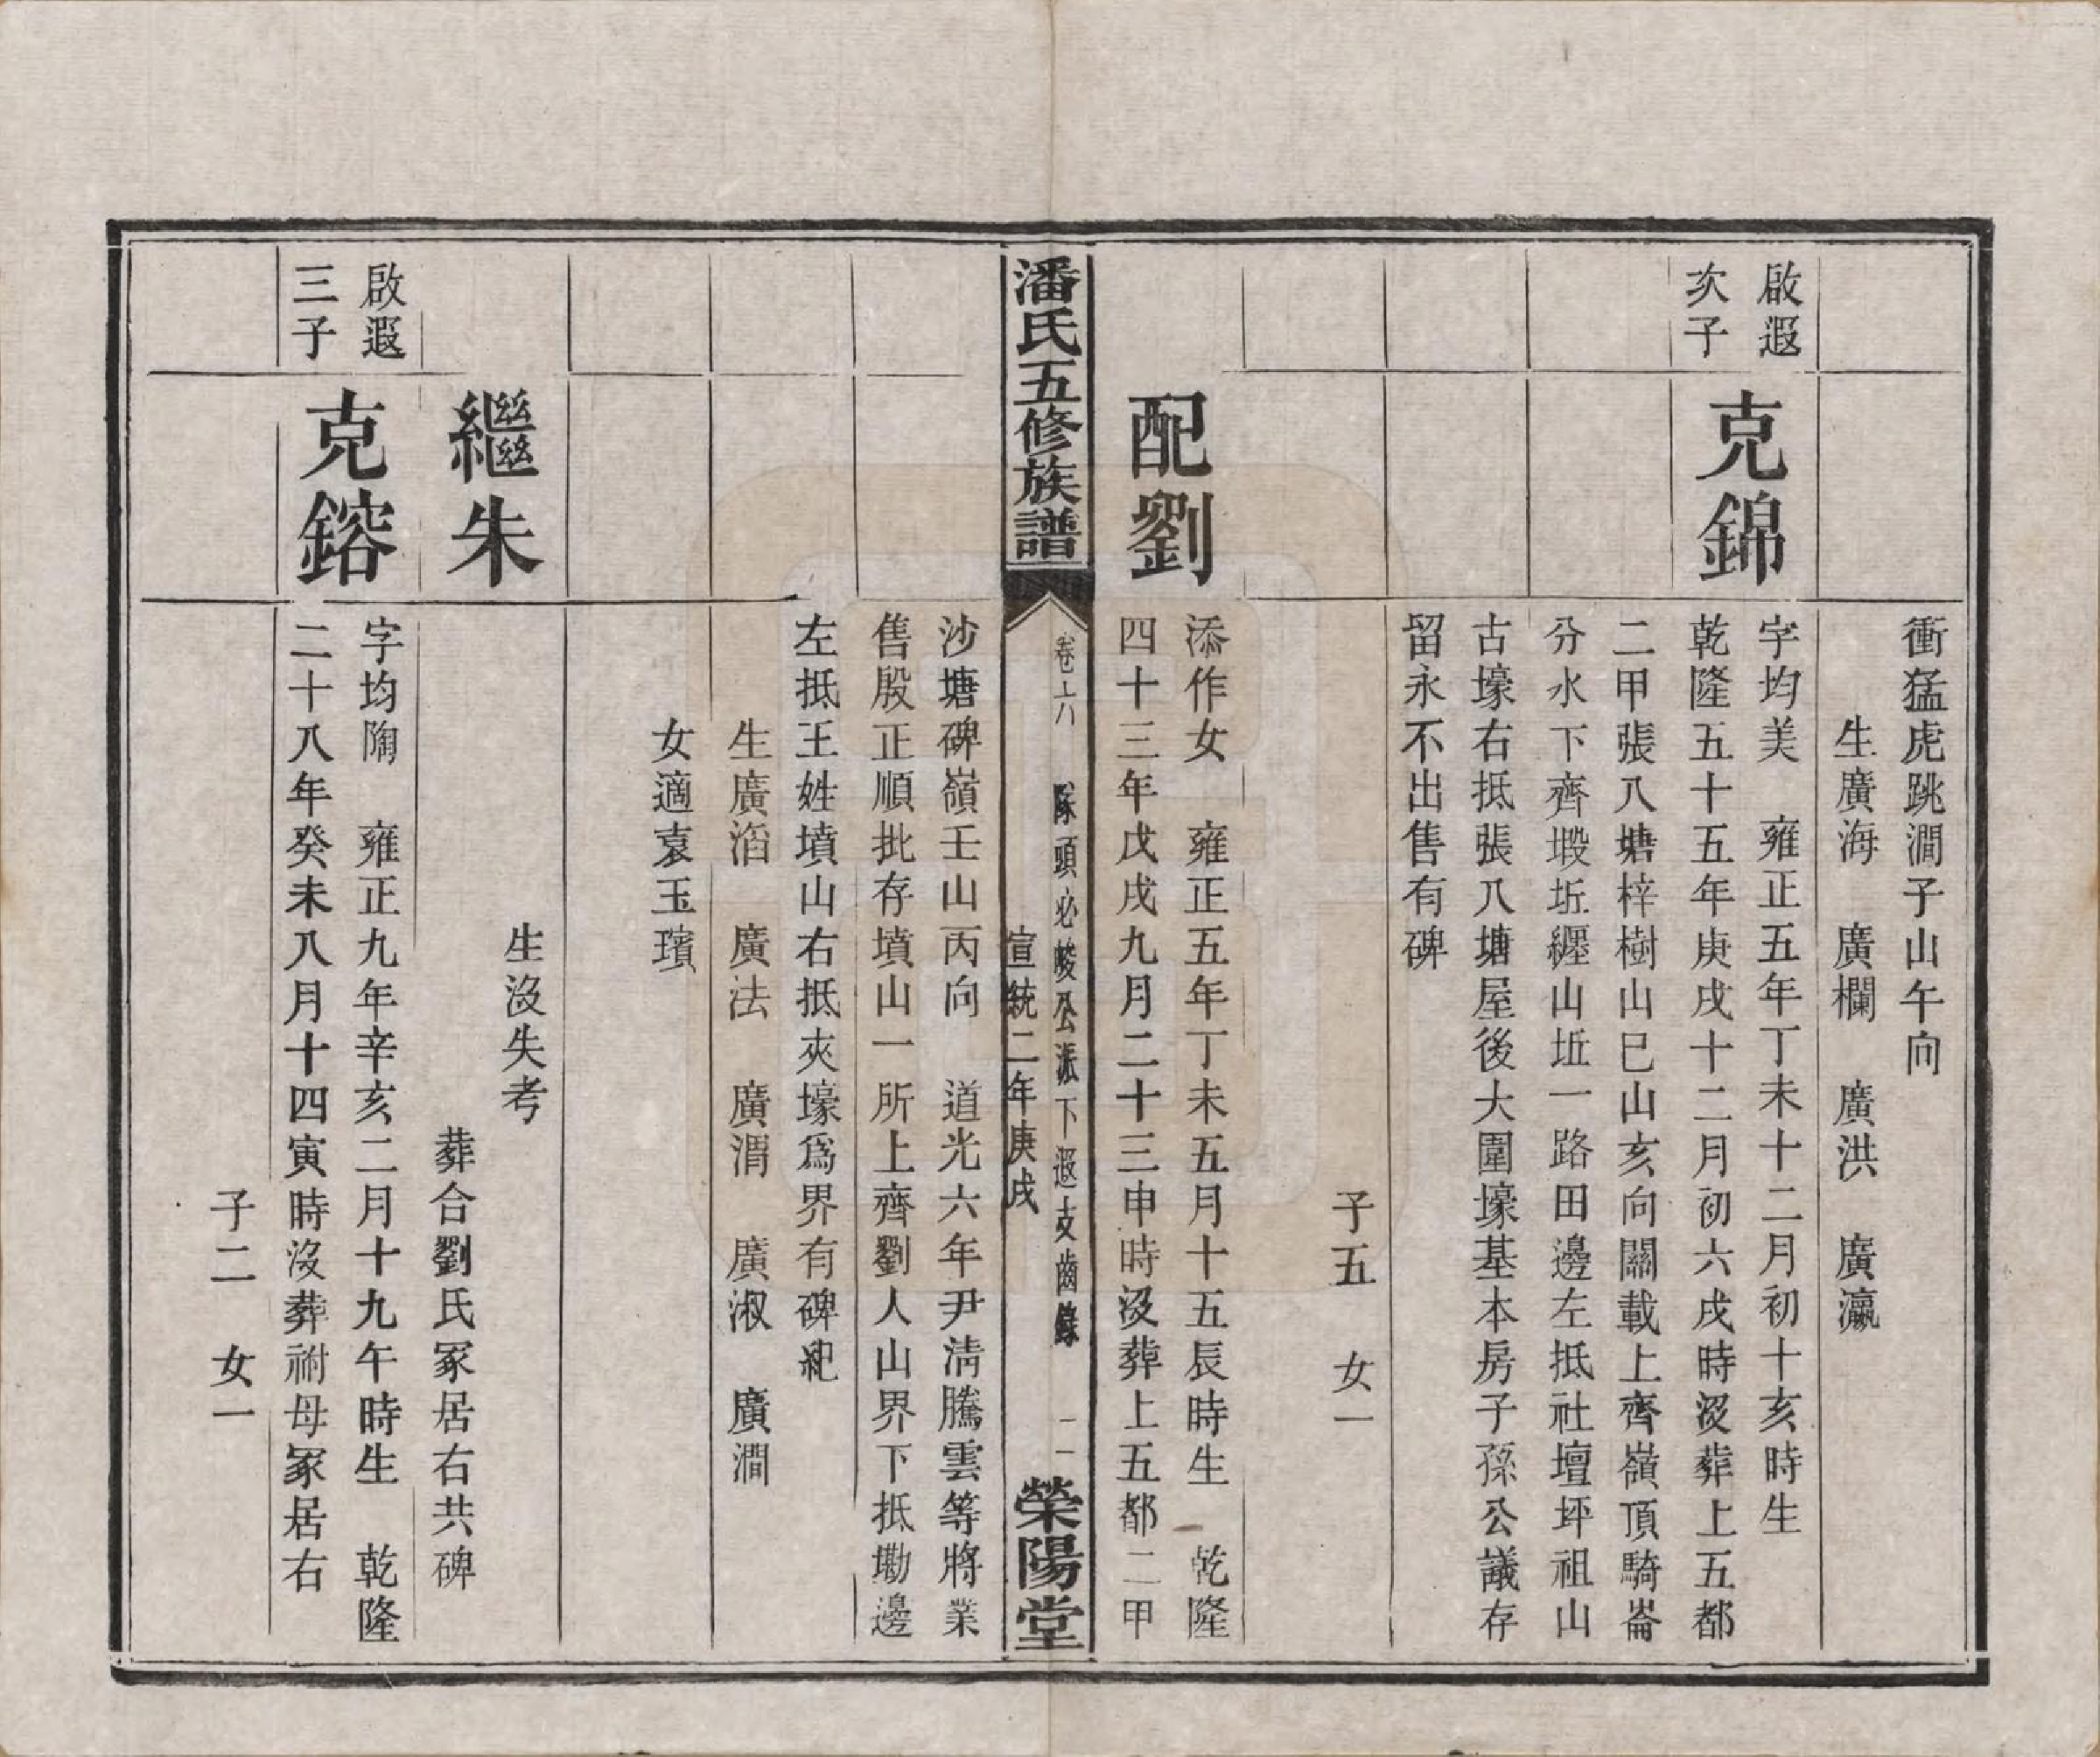 衝猛虎跳澗子山午向
生廣海　廣欄　廣洪　廣瀛
啟遐
次子
克錦
字均美　雍正五年丁未十二月初十亥時生
乾隆五十五年庚戌十二月初六戌時沒葬上五都
二甲張八塘梓樹山巳山亥向關載上齊嶺頂騎崙
分水下齊塅坵纒山坵一路田邊左抵社壇坪祖山
古壕右抵張八塘屋後大圍壕基本房子孫公議存
留永不出售有碑
子五　女一
配劉
添作女　雍正五年丁未五月十五辰時生　乾隆
四十三年戊戌九月二十三申時沒葬上五都二甲
潘氏五修族譜
卷十八　隊頭必峻公派下遐支齒錄　二一
宣統二年庚戌
榮陽堂
沙塘碑嶺壬山丙向　道光六年尹淸騰雲等將業
售殷正順批存墳山一所上齊劉人山界下抵墈邊
左抵王姓墳山右抵夾壕爲界有碑紀
生廣滔　廣法　廣渭　廣淑　廣澗
女適袁玉璸
繼朱
生沒失考
葬合劉氏冢居右共碑
啟遐
三子
克鎔
字均陶　雍正九年辛亥二月十九午時生　乾隆
二十八年癸未八月十四寅時沒葬祔母冢居右
子二　女一